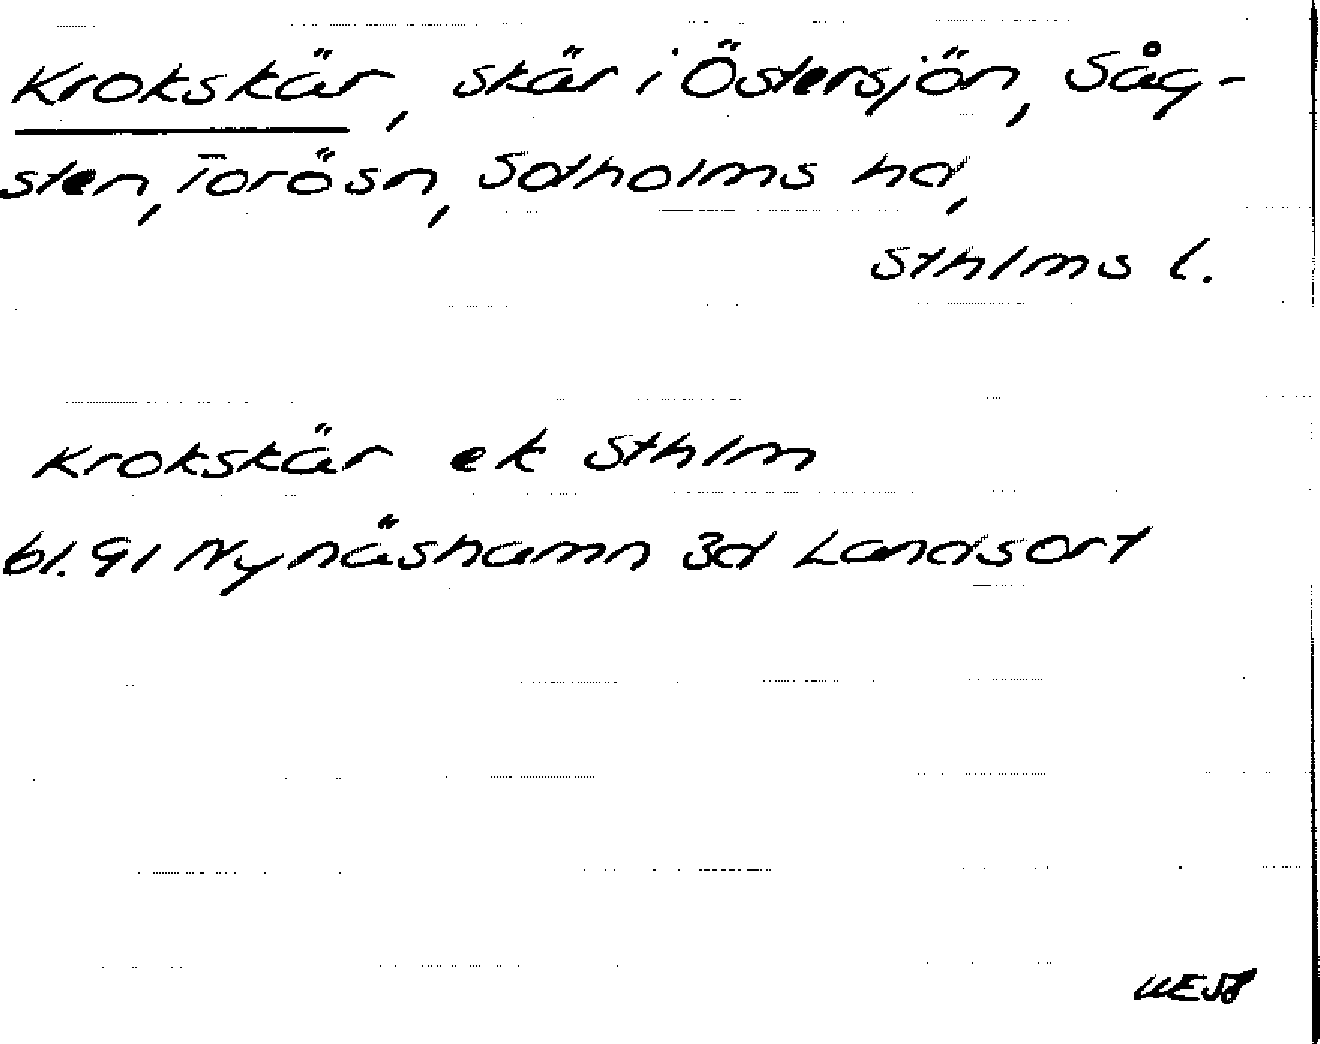 Krokskär, skär i Östersjön, Såg-
sten, Torö sn, Sotholms hd,
Sthlms l.
Krokskär ek Sthlm
bl. 91 Nynäshamn 3d Landsort